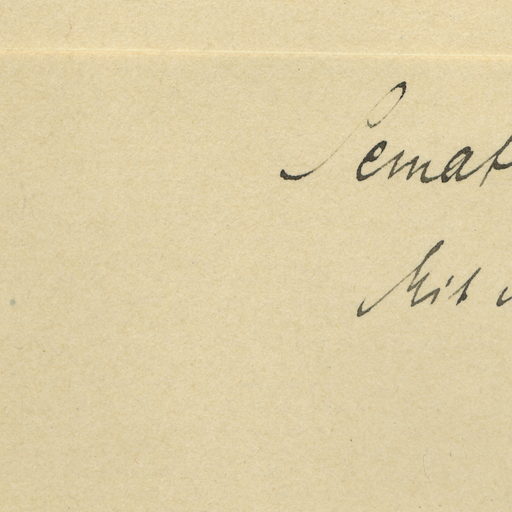 Semat
Mit